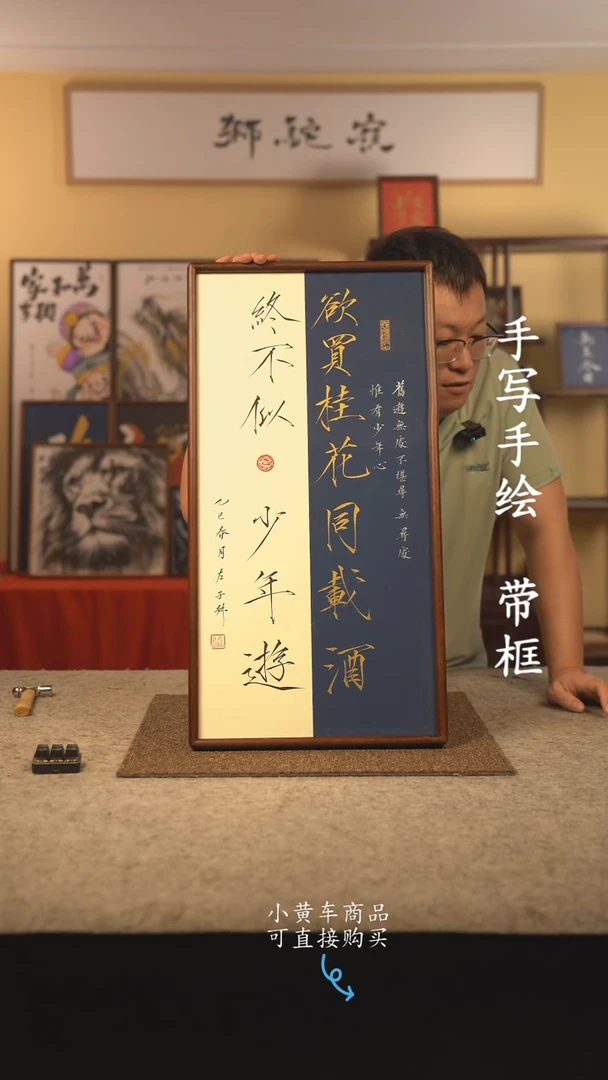 獅駝
舊遊無處不堪尋 無尋處
惟有少年心
欲買桂花同載酒
終不似 少年遊
乙巳春月左子
手写手绘 带框
小黄车商品
可直接购买